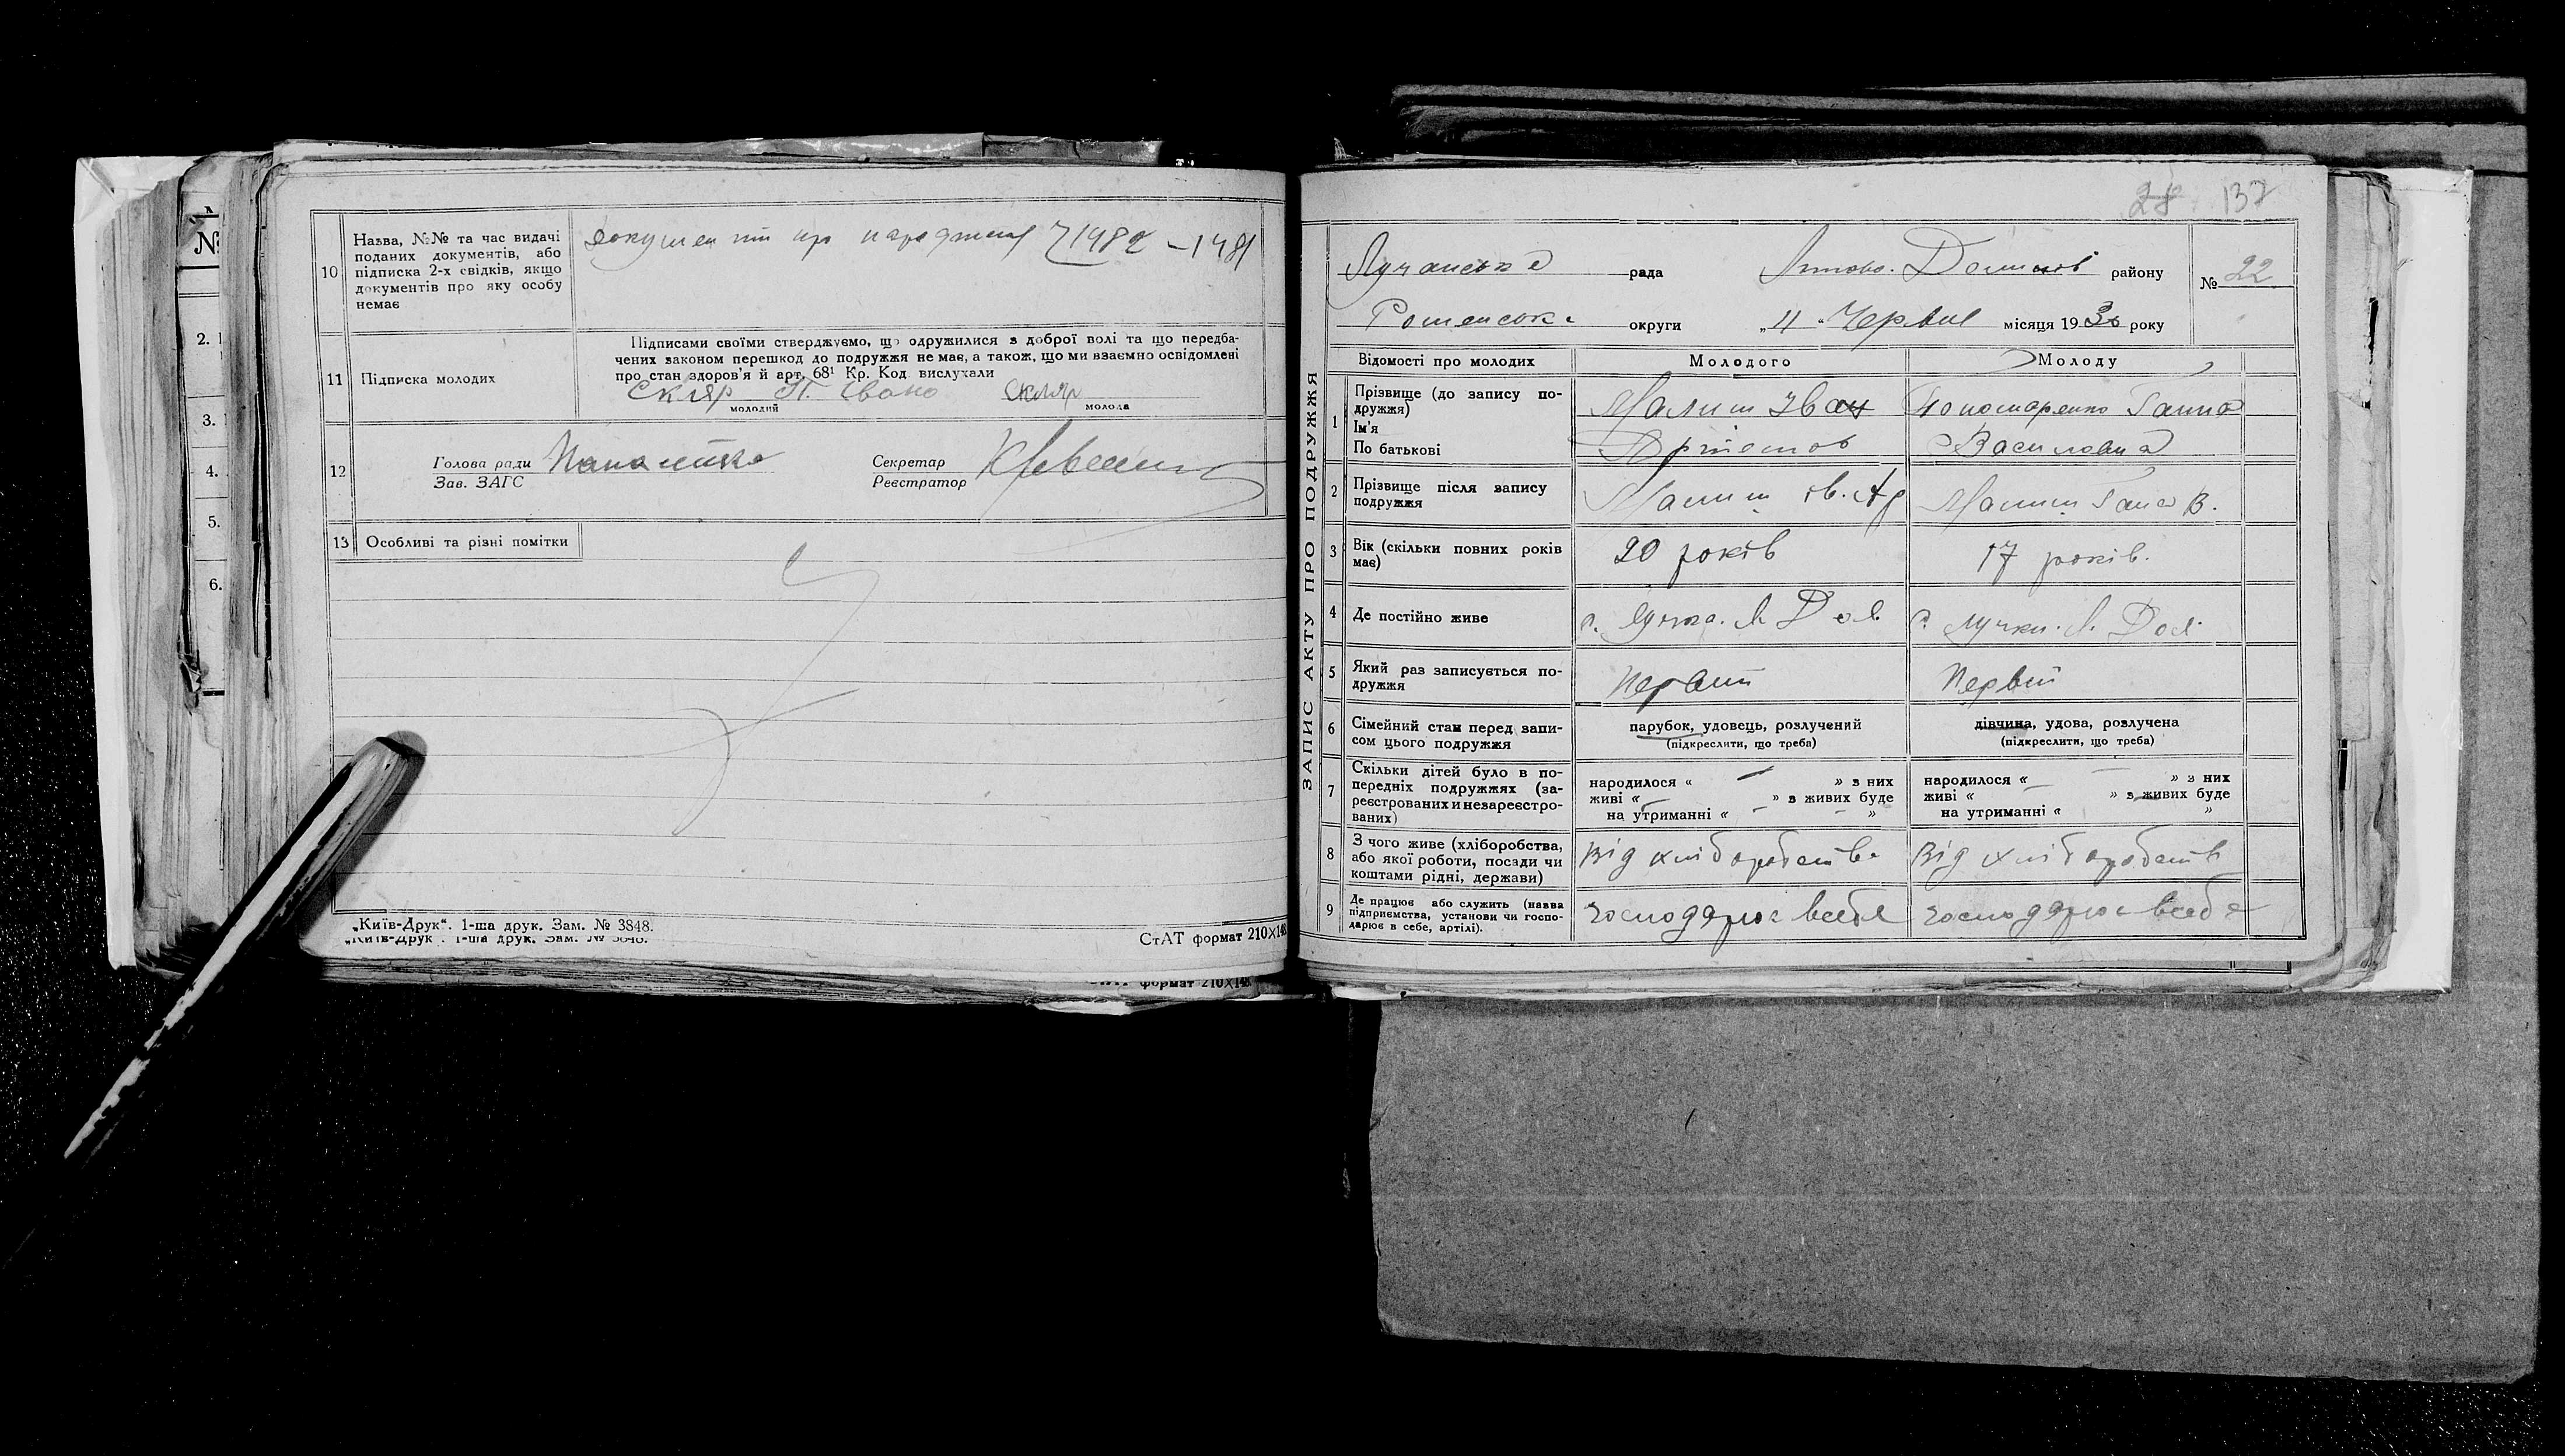 №
2.
3.
4.
5.
6.
10
Назва, №№ та час видачі
поданих документів, або
підписка 2-х свідків, якщо
документів про яку особу
немає
документи про народження 71482 – 1481
11
Підписка молодих
Підписами своїми стверджуємо, що одружилися з доброї волі та що передба-
чених законом перешкод до подружжя не має, а також, що ми взаємно освідомлені
про стан здоров'я й арт. 68¹ Кр. Код вислухали
Скляр П. Скляр
молодий молода
12
Голова ради
Зав. ЗАГС
Секретар
Реєстратор
13 Особливі та різні помітки
„Київ-Друк“. 1-ша друк. Зам. № 3848.
„Київ-Друк“. 1-ша друк. Зам. № 3848.
СтАТ формат 210×148
формат 210×148
28 137
ЗАПИС АКТУ ПРО ПОДРУЖЖЯ
Лучанська рада Долинсь району
№ 22
Роменська округи „11“ Червня місяця 1930 року
Відомості про молодих Молодого Молоду
1
Прізвище (до запису по-
дружжя)
Ім'я
По батькові
Малиш Іван
Артемов
Пономаренко Ганна
Василовна
2
Прізвище після запису
подружжя
Малиш Ів. Ар
Малиш Гана В.
3
Вік (скільки повних років
має)
20 років
17 років.
4
Де постійно живе
с. Лучка. Л Дол.
с. Лучки. Л. Дол.
5
Який раз записується по-
дружжя
Первий
Первий
6
Сімейний стан перед запи-
сом цього подружжя
парубок, удовець, розлучений
(підкреслити, що треба)
дівчина, удова, розлучена
(підкреслити, що треба)
7
Скільки дітей було в по-
передніх подружжях (за-
реєстрованих и незареєстро-
ваних)
народилося « — » з них
живі « — » з живих буде
на утриманні « — — »
народилося « — » з них
живі « — » з живих буде
на утриманні « »
8
З чого живе (хліборобства,
або якої роботи, посади чи
коштами рідні, держави)
Від хліборобства
Від хліборобств
9
Де працює або служить (назва
підприємства, установи чи госпо-
дарює в себе, артілі).
господарює всебе
господарює всебе